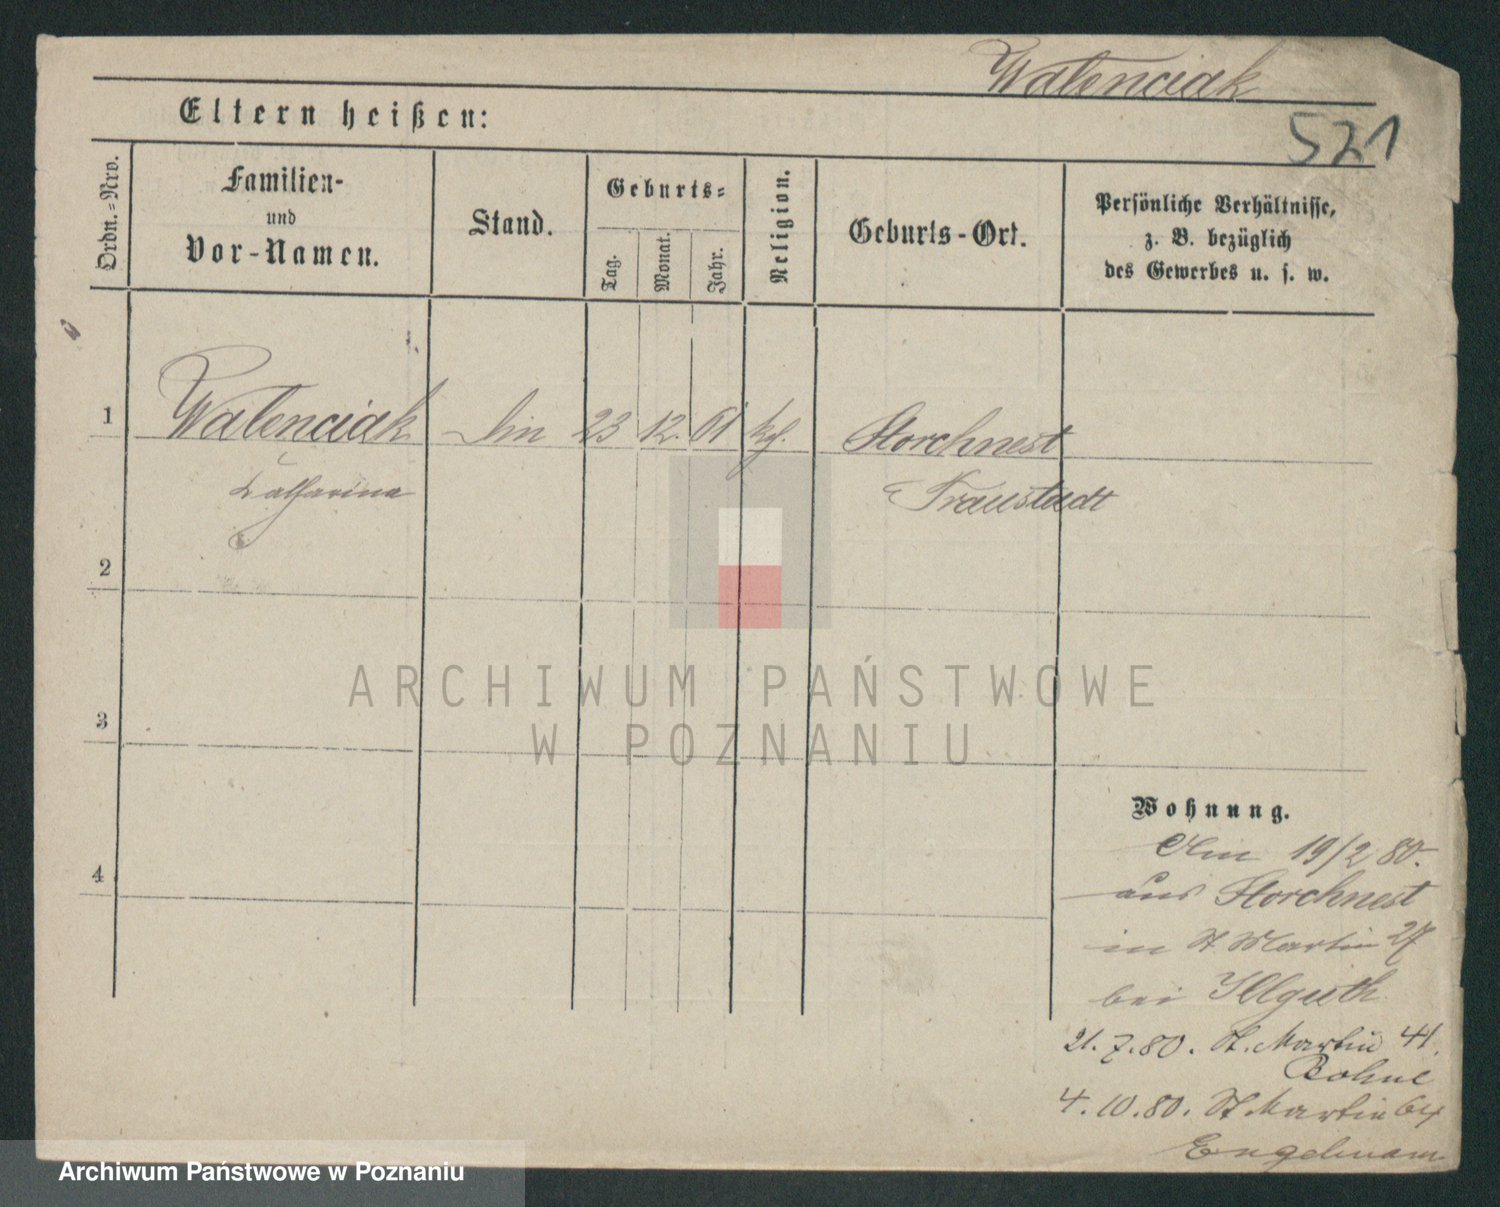 Walenciak
521
Eltern heißen:
Ordn.-Nro.
Familien-
und
Vor-Namen.
Stand.
Geburts-
Tag.
Monat.
Jahr.
Religion.
Geburts-Ort.
Persönliche Verhältnisse,
z. B. bezüglich
des Gewerbes u. s. w.
1 Walenciak 23 12. 61 kg. Storchnest
Catharina Fraustadt
2
3
4
ARCHIWUM PAŃSTWOWE
W POZNANIU
Wohnung.
Am 19/2 80.
aus Storchnest
in St Martin 27
bei Illguth
21.7.80. St. Martin 41.
Bohne
4.10.80. St Martin 64
Engelmann
Archiwum Państwowe w Poznaniu